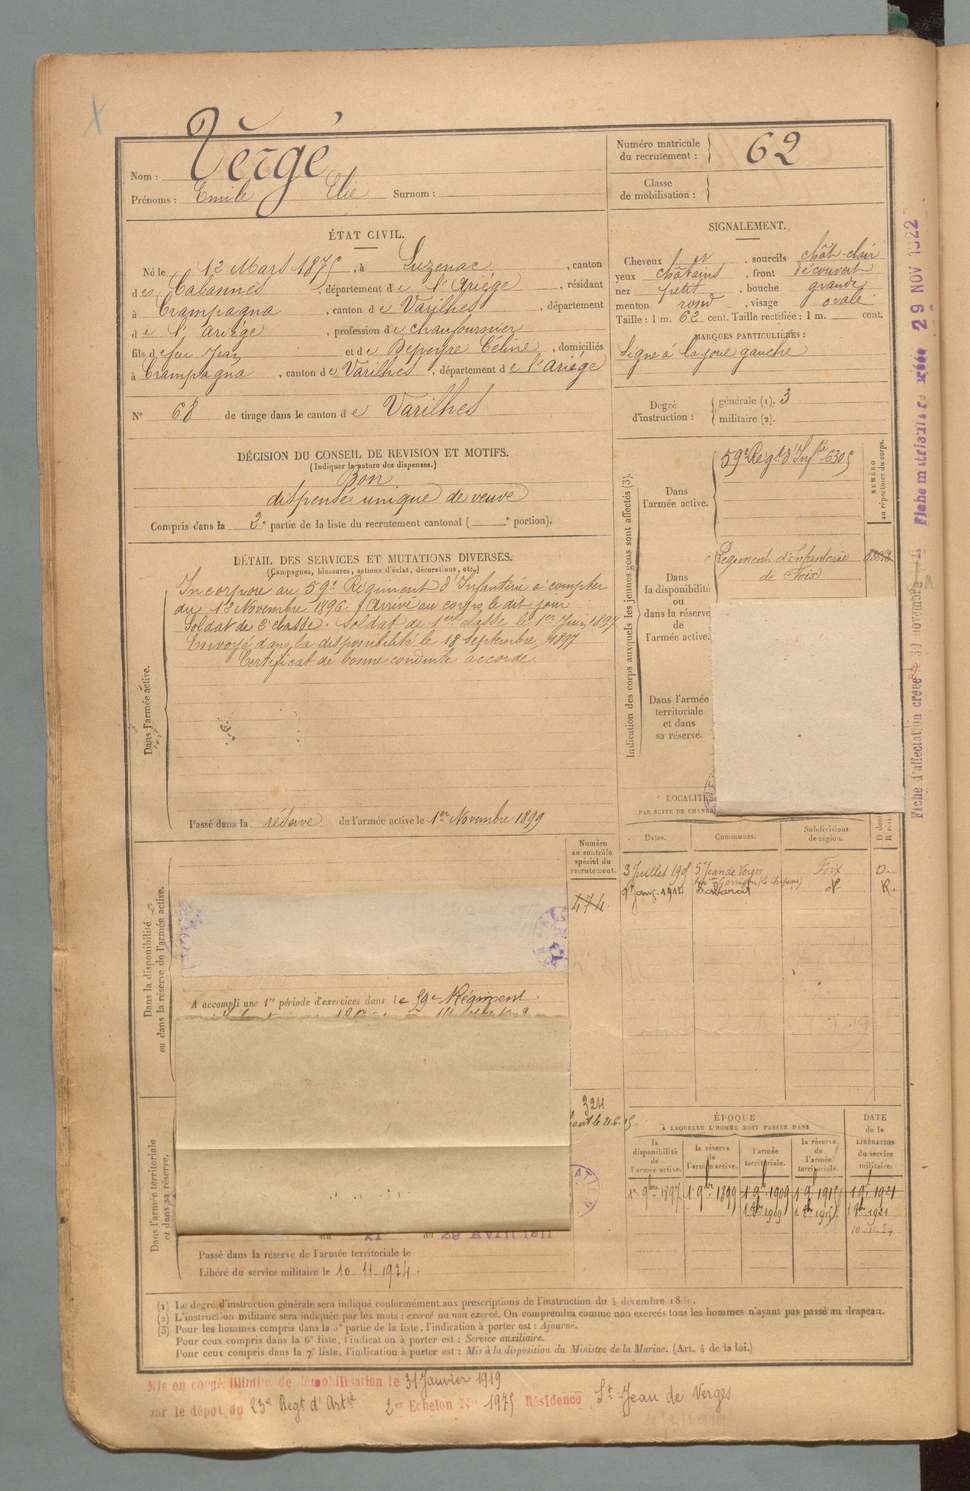 Nom : Vergé
Prénoms : Emile Elie Surnom :
Numéro matricule du recrutement : 62
Classe de mobilisation :
ÉTAT CIVIL.
Né le 12 Mars 1875, à Luzenac, canton
des Cabannes, département de l'Ariège, résidant
à Crampagna, canton de Varilhes, département
de l'Ariège, profession de chaufournier
fils de feu Jean et de Depeyre Céline, domiciliés
à Crampagna, canton de Varilhes, département de l'Ariège
N° 63 de tirage dans le canton de Varilhes
SIGNALEMENT.
Cheveux et sourcils chât. clair
yeux châtains, front découvert
nez petit, bouche grande
menton rond, visage ovale
Taille : 1 m. 62 cent. Taille rectifiée : 1 m. cent.
MARQUES PARTICULIÈRES :
Signe à la joue gauche
Degré d'instruction : générale (1). 3
militaire (2).
DÉCISION DU CONSEIL DE REVISION ET MOTIFS.
(Indiquer la nature des dispenses.)
Bon
dispensé unique de veuve
Compris dans la 2e partie de la liste du recrutement cantonal ( e portion).
DÉTAIL DES SERVICES ET MUTATIONS DIVERSES.
(Campagnes, blessures, actions d'éclat, décorations, etc.)
Dans l'armée active.
Incorporé au 59e Régiment d'Infanterie à compter
du 12 Novembre 1896. Arrivé au corps le dit jour
Soldat de 2e classe. Soldat de 1ère classe le 1er Juin 1897
Envoyé dans la disponibilité le 18 septembre 1897
Certificat de bonne conduite accordé
Passé dans la réserve de l'armée active le 1er Novembre 1899
Indication des corps auxquels les jeunes gens sont affectés (3).
Dans l'armée active.
59e Regt d'Infie 6305
NUMÉRO au répertoire du corps.
Dans la disponibilité ou dans la réserve de l'armée active.
Régiment d'Infanterie
de Foix
Dans l'armée territoriale et dans sa réserve.
LOCALITÉS
PAR SUITE DE CHANG
Dates. Communes. Subdivisions de région.
3 Juillet 190 St Jean de Verges Foix D.
1914 Sabarat R.
Numéro au contrôle spécial du recrutement.
474
Dans la disponibilité ou dans la réserve de l'armée active.
A accompli une 1re période d'exercices dans le 59e Régiment
Dans l'armée territoriale et dans sa réserve.
324
du 21 au 29 Avril 1911
Passé dans la réserve de l'armée territoriale le
Libéré du service militaire le 10.11.1924
ÉPOQUE
A LAQUELLE L'HOMME DOIT PASSER DANS
la disponibilité de l'armée active.
la réserve de l'armée active.
l'armée territoriale.
la réserve de l'armée territoriale.
DATE de la LIBÉRATION du service militaire.
1er 9bre 1897 1er 9bre 1899 1er 9bre 1909 1er 9bre 1915 1er 9bre 1921
1er 8bre 1909 1er 8bre 1915 1er 8bre 1921
10-11-24
(1) Le degré d'instruction générale sera indiqué conformément aux prescriptions de l'instruction du 4 décembre 18
(2) L'instruction militaire sera indiquée par les mots : exercé ou non exercé. On comprendra comme non exercés tous les hommes n'ayant pas passé au drapeau.
(3) Pour les hommes compris dans la 5e partie de la liste, l'indication à porter est : Ajourné.
Pour ceux compris dans la 6e liste, l'indication à porter est : Service auxiliaire.
Pour ceux compris dans la 7e liste, l'indication à porter est : Mis à la disposition du Ministre de la Marine. (Art. 4 de la loi.)
Mis en congé illimité de démobilisation le 31 Janvier 1919
par le dépôt du 23e Regt d'Artie 2e Echelon No 1975 Résidence St Jean de Verges
Fiche matricule créée 29 NOV 1922
Fiche d'affectation créée 30 novembre